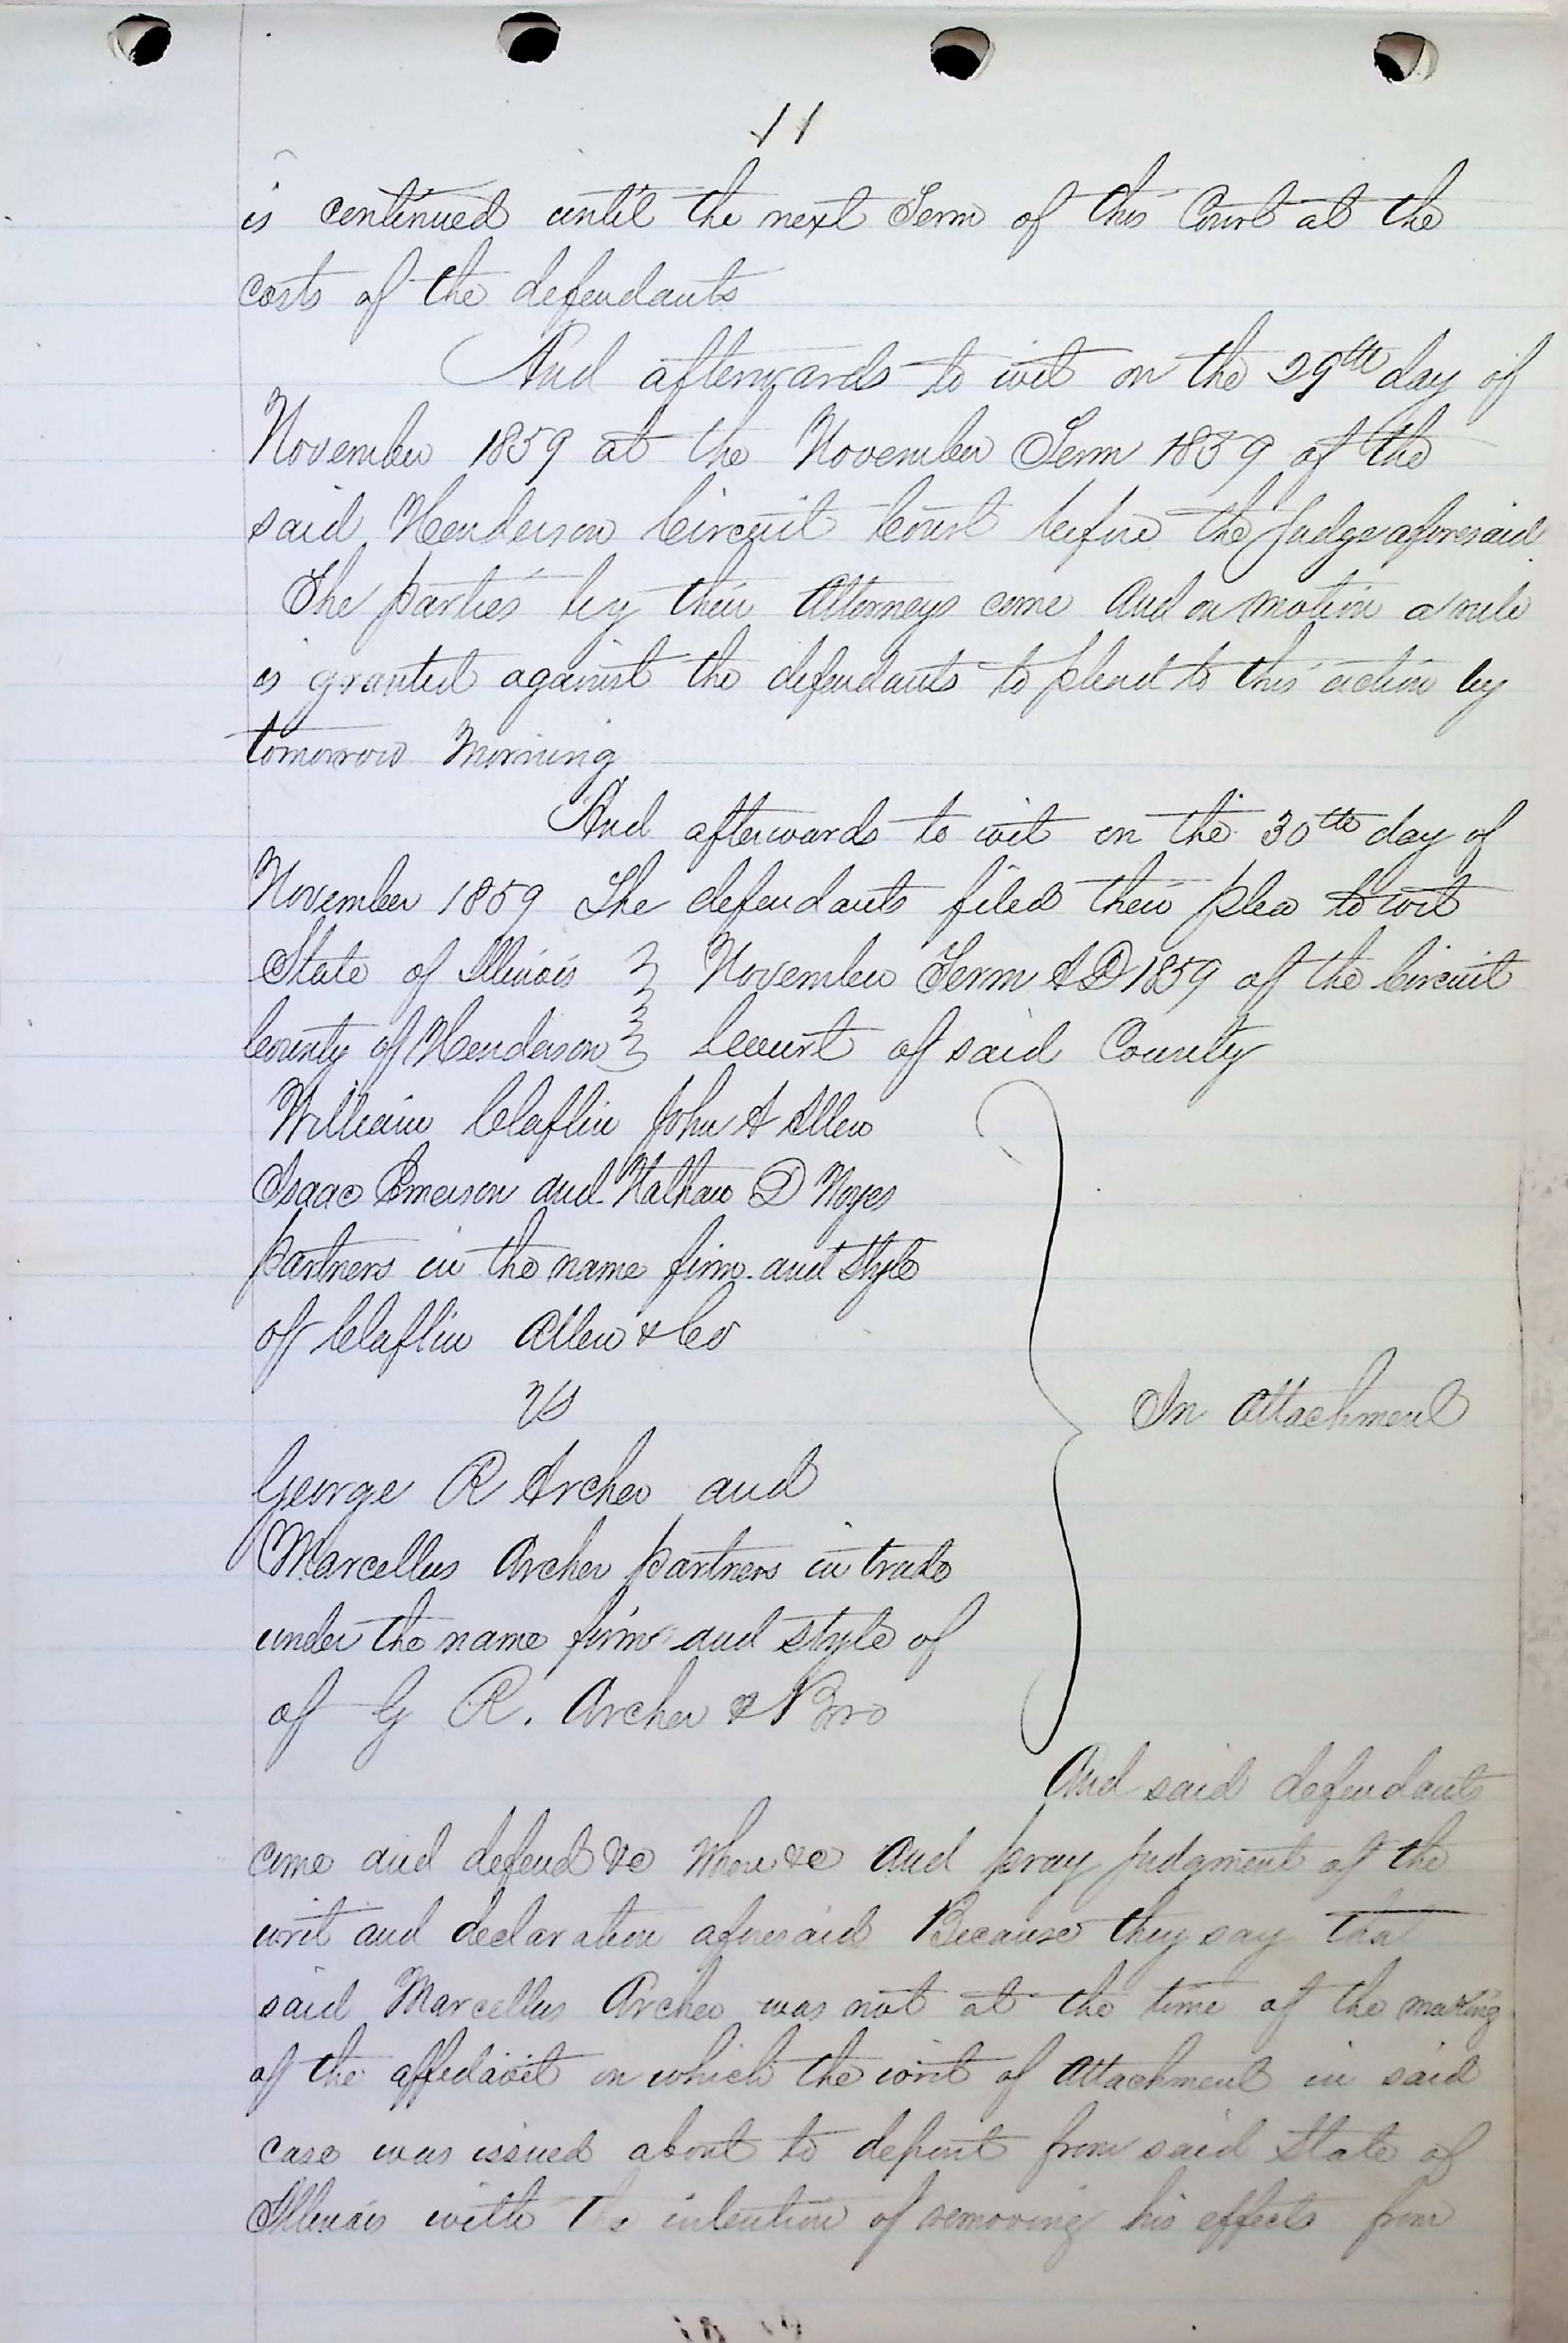 11
is continued until the next Term of this Court at the
costs of the defendants
And afterwards to wit on the 29th day of
November 1859 at the November Term 1859 of the
said Henderson Circuit Court before the Judge aforesaid
The parties by their Attorneys come And on motion a rule
is granted against the defendants to plead to this action by
tomorrow Morning
And afterwards to wit on the 30th day of
November 1859 The defendants filed their plea to wit
State of Illinois } November Term A D 1859 of the Circuit
County of Henderson } Court of said County
William Claflin John A Allen
Isaac Emerson and Nathan D Noyes
partners in the name firm and Style
of Claflin Allen & Co
vs
In Attachment
George R Archer and
Marcellus Archer partners in trade
under the name firm and style of
of G R. Archer & Bro
And said defendants
come and defend &c When &c And pray judgment of the
writ and declaration aforesaid Because they say that
said Marcellus Archer was not at the time of the making
of the affidavit on which the writ of Attachment in said
case was issued about to depart from said State of
Illinois with the intention of removing his effects from